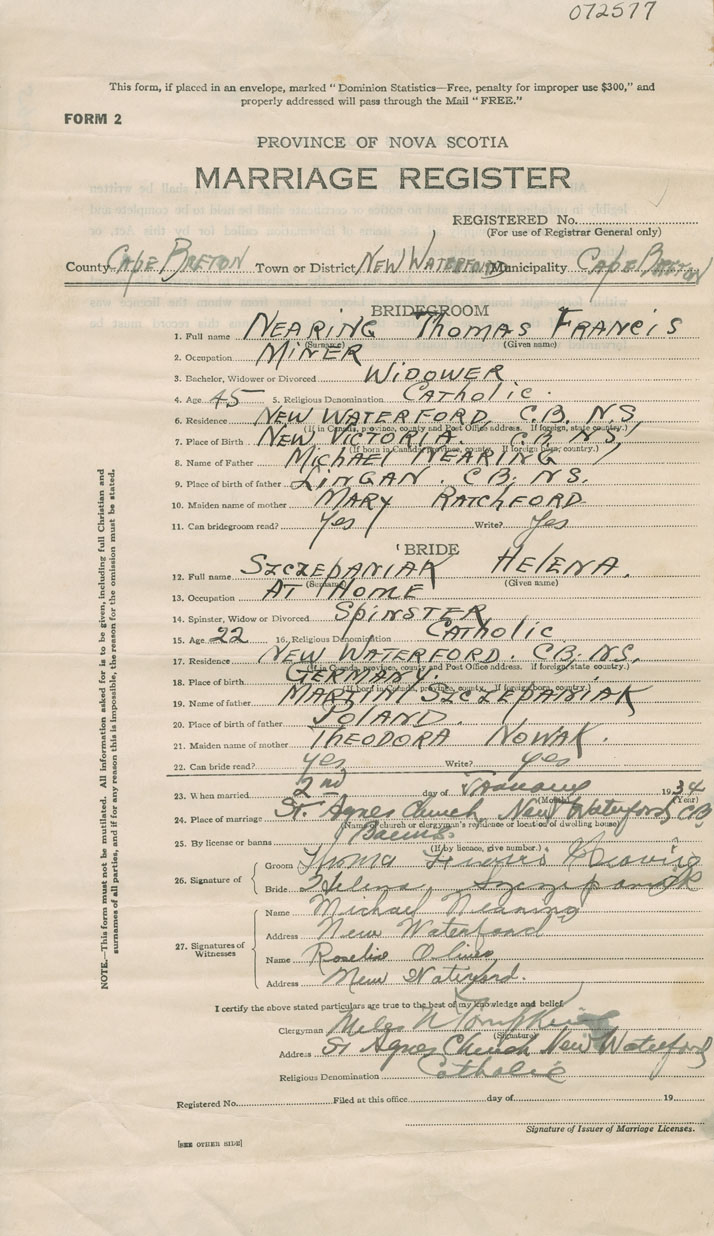 072577
This form, if placed in an envelope, marked "Dominion Statistics—Free, penalty for improper use $300," and
properly addressed will pass through the Mail "FREE."
FORM 2
PROVINCE OF NOVA SCOTIA
MARRIAGE REGISTER
REGISTERED No.
(For use of Registrar General only)
County CAPE BRETON Town or District NEW WATERFORD Municipality CAPE BRETON
BRIDEGROOM
1. Full name NEARING THOMAS FRANCIS
(Surname) (Given name)
2. Occupation MINER
3. Bachelor, Widower or Divorced WIDOWER
4. Age 45 5. Religious Denomination CATHOLIC.
6. Residence NEW WATERFORD, C.B. N.S.
(If in Canada, province, county and Post Office address. If foreign, state country.)
7. Place of Birth NEW VICTORIA. C.B. N.S.
(If born in Canada, province, county. If foreign born, country.)
8. Name of Father MICHAEL NEARING
9. Place of birth of father LINGAN. C.B. N.S.
10. Maiden name of mother MARY RATCHFORD
11. Can bridegroom read? Yes Write? Yes
BRIDE
12. Full name SZCZEPANIAK HELENA.
(Surname) (Given name)
13. Occupation AT HOME
14. Spinster, Widow or Divorced SPINSTER
15. Age 22 16. Religious Denomination CATHOLIC
17. Residence NEW WATERFORD. C.B. N.S.
(If in Canada, province, county and Post Office address. If foreign, state country.)
18. Place of birth GERMANY.
(If born in Canada, province, county. If foreign born, country.)
19. Name of father SZCZEPANIAK
20. Place of birth of father POLAND.
21. Maiden name of mother THEODORA NOWAK.
22. Can bride read? yes Write? yes
23. When married 2nd day of January 1934
(Month) (Year)
24. Place of marriage St. Agnes Church, New Waterford, CB
(Name of church or clergyman's residence or location of dwelling house)
25. By license or banns Banns
(If by licence, give number.)
26. Signature of Groom Thomas Francis Nearing
Bride Helena Szczepaniak
27. Signatures of Witnesses
Name Michael Nearing
Address New Waterford
Name Roseline
Address New Waterford.
I certify the above stated particulars are true to the best of my knowledge and belief
Clergyman Miles N Tompkins
(Signature)
Address St Agnes Church New Waterford
Religious Denomination Catholic
Registered No. Filed at this office day of 19
Signature of Issuer of Marriage Licenses.
[SEE OTHER SIDE]
NOTE.—This form must not be mutilated. All information asked for is to be given, including full Christian and
surnames of all parties, and if for any reason this is impossible, the reason for the omission must be stated.